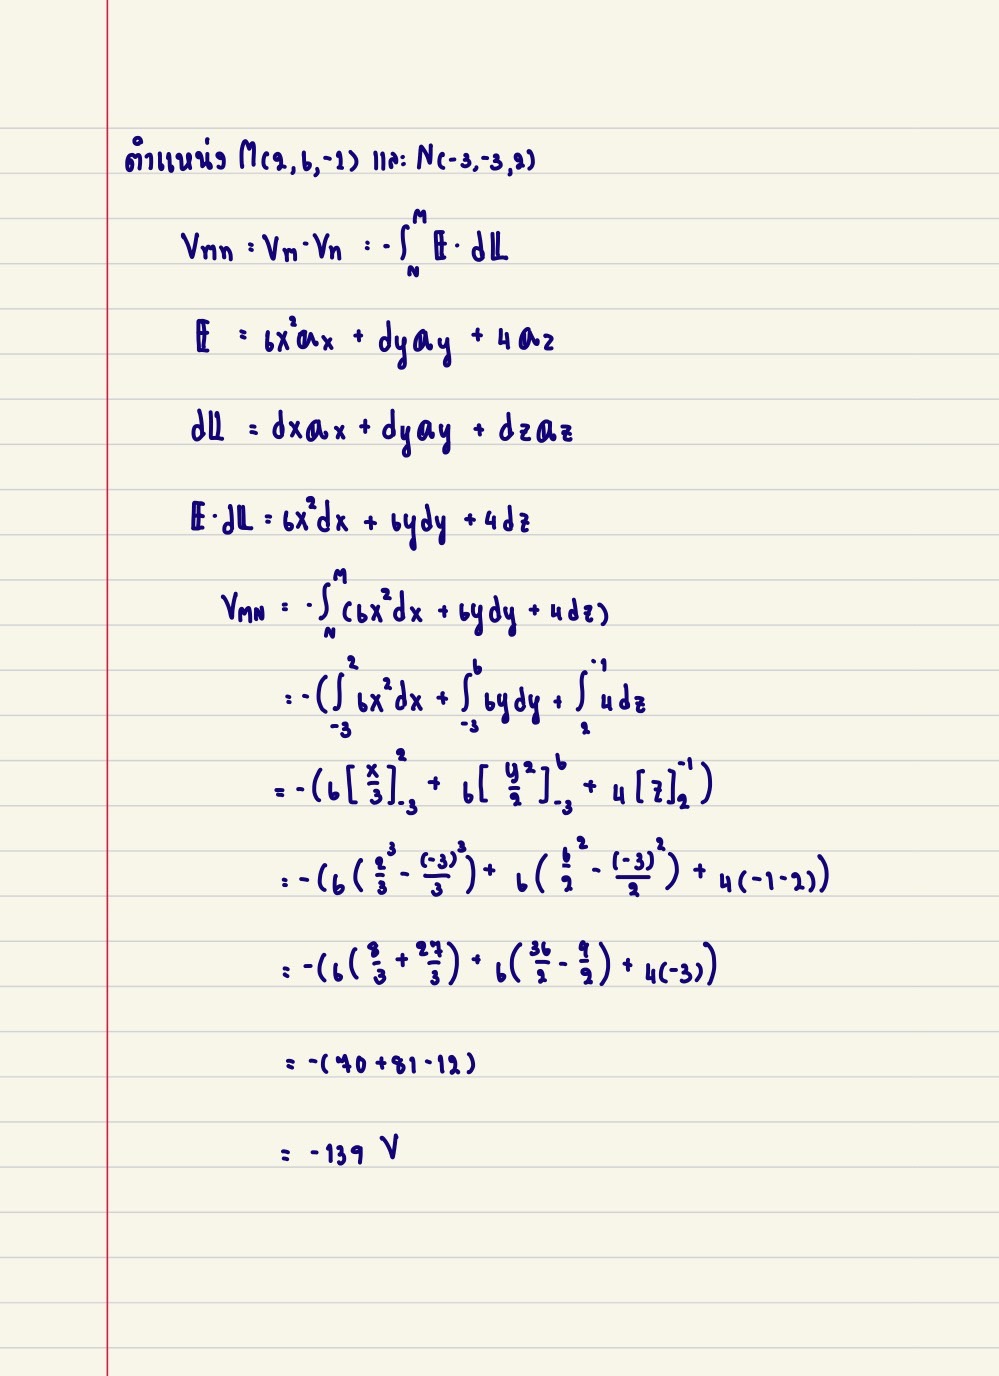 ตำแหน่ง M(2,6,-1) และ N(-3,-3,2)
Vmn = Vm - Vn = -∫_N^M E · dL
E = 6x²ax + dyay + 4az
dL = dxax + dyay + dzaz
E · dL = 6x²dx + 6ydy + 4dz
V_MN = -∫_N^M (6x²dx + 6ydy + 4dz)
= -(∫_-3^2 6x²dx + ∫_-3^6 6ydy + ∫_2^-1 4dz
= -(6[x/3]_-3^2 + 6[y²/2]_-3^6 + 4[z]_2^-1)
= -(6(2³/3 - (-3)³/3) + 6(6²/2 - (-3)²/2) + 4(-1-2))
= -(6(8/3 + 27/3) + 6(36/2 - 9/2) + 4(-3))
= -(70 + 81 - 12)
= -139 V